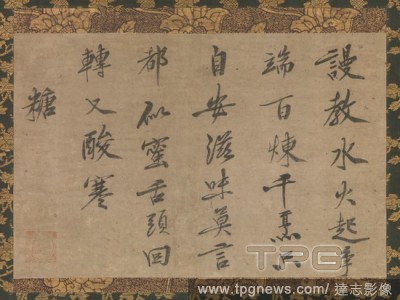 謾教水火起爭
端百煉千烹只
自安滋味莫言
都似蜜舌頭回
轉又酸寒
糖
TPG
www.tpgnews.com | 達志影像